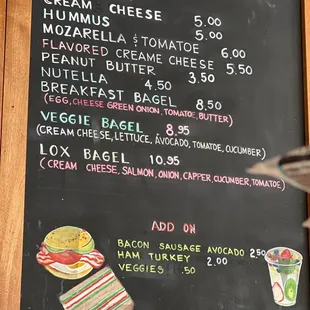 CREAM CHEESE 5.00
HUMMUS 5.00
MOZARELLA & TOMATOE 6.00
FLAVORED CREAME CHEESE 5.50
PEANUT BUTTER 3.50
NUTELLA 4.50
BREAKFAST BAGEL 8.50
(EGG, CHEESE GREEN ONION, TOMATOE, BUTTER)
VEGGIE BAGEL 8.95
(CREAM CHEESE, LETTUCE, AVOCADO, TOMATOE, CUCUMBER)
LOX BAGEL 10.95
(CREAM CHEESE, SALMON, ONION, CAPPER, CUCUMBER, TOMATOE)
ADD ON
BACON SAUSAGE AVOCADO 2.50
HAM TURKEY 2.00
VEGGIES .50